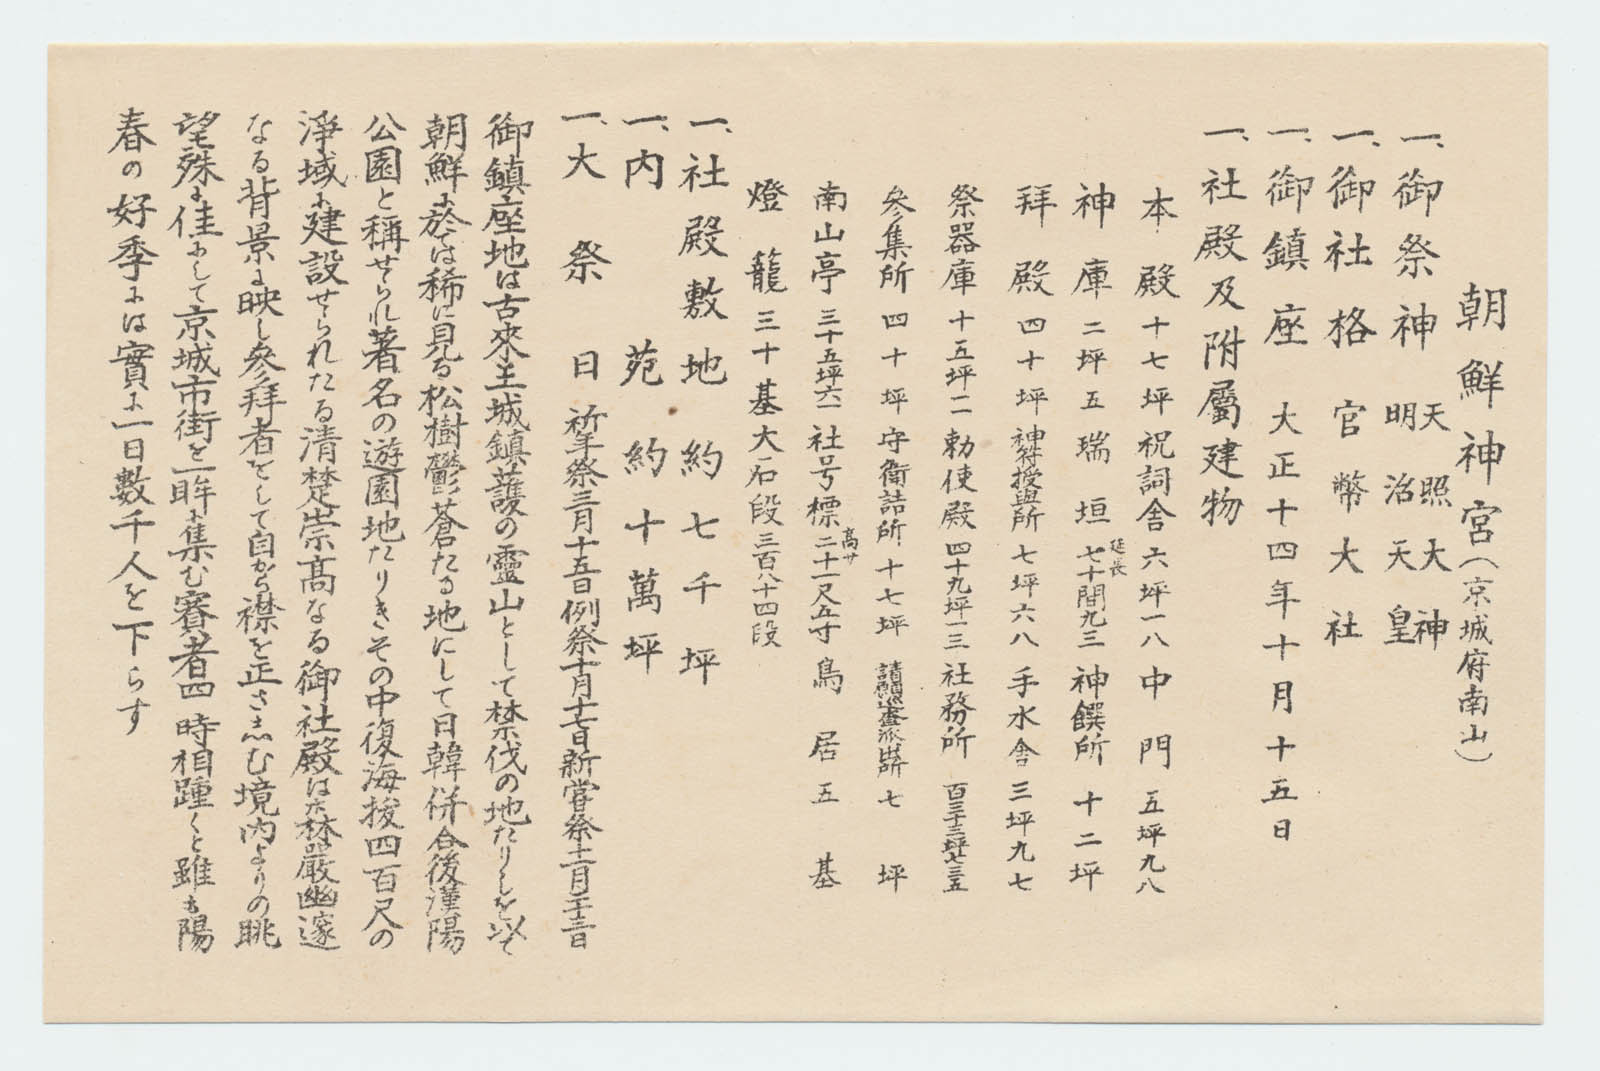 朝鮮神宮(京城府南山)
一、御祭神 天照大神
明治天皇
一、御社格 官幣大社
一、御鎮座 大正十四年十月十五日
一、社殿及附屬建物
本殿 十七坪 祝詞舎 六坪一八 中門 五坪九八
神庫 二坪五 瑞垣 延長七十間九三 神饌所 十二坪
拜殿 四十坪 神符授與所 七坪六八 手水舎 三坪九七
祭器庫 十五坪二 勅使殿 四十九坪一三 社務所 百三十三坪七三五
參集所 四十坪 守衛詰所 十七坪 請願巡査派出所 七坪
南山亭 三十五坪六一 社号標 高サ二十一尺五寸 鳥居 五基
燈籠 三十基 大石段 三百八十四段
一、社殿敷地 約七千坪
一、内苑 約十萬坪
一、大祭日 祈年祭三月十五日 例祭十月十七日 新嘗祭十一月二十三日
御鎮座地は古來王城鎮護の靈山として禁伐の地たりしを以て
朝鮮に於ては稀に見る松樹鬱蒼たる地にして日韓併合後漢陽
公園と稱せられ著名の遊園地たりきその中復海拔四百尺の
淨域に建設せられたる清楚崇高なる御社殿は森嚴幽邃
なる背景に映し參拜者をして自から襟を正さしむ境内よりの眺
望殊に佳にして京城市街を一眸に集む賽者四時相踵くと雖も陽
春の好季には實に一日數千人を下らす